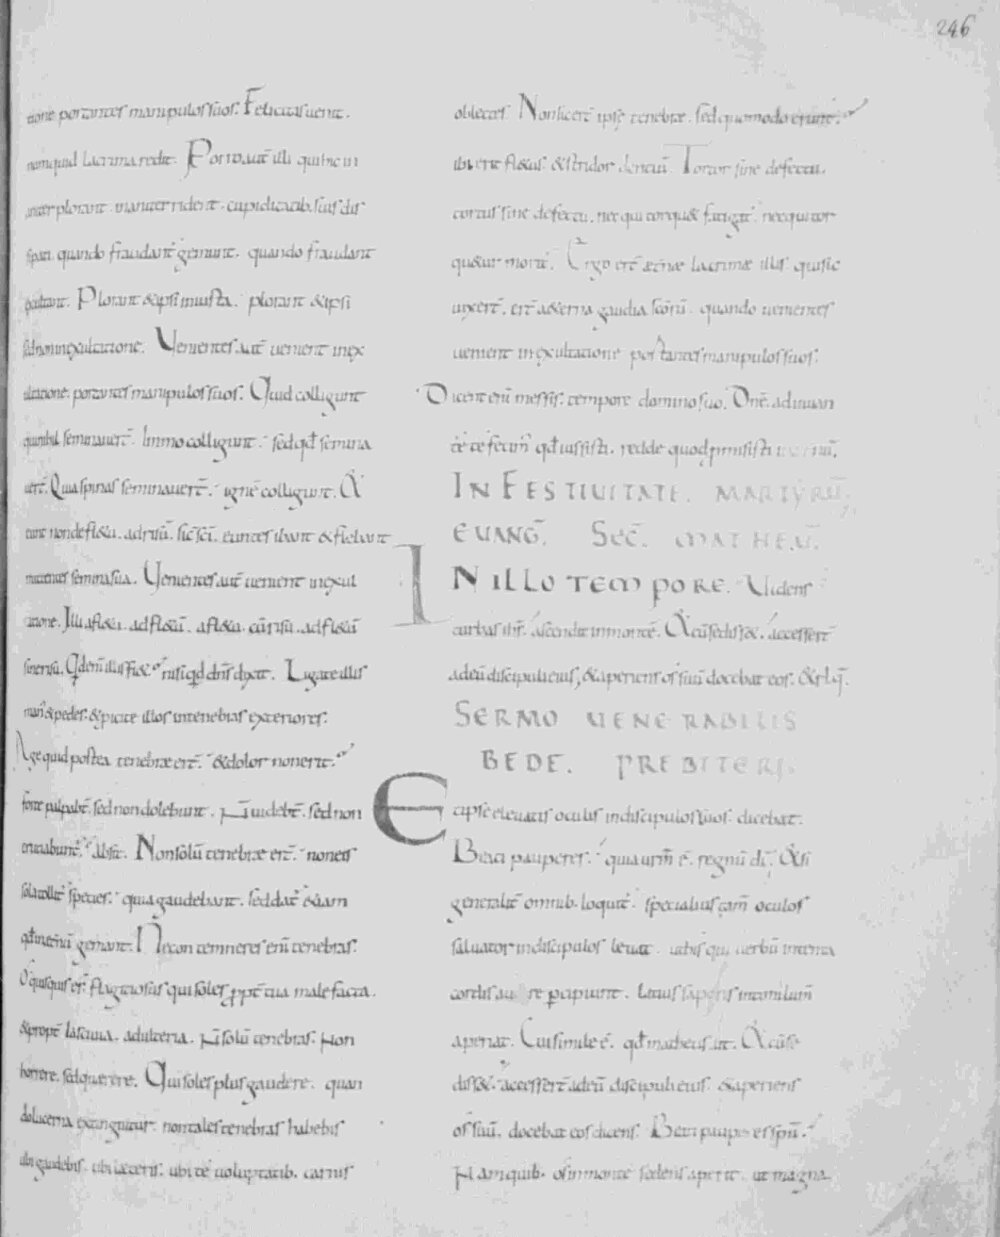 246
tione portantes manipulos suos. Felicitas uenit.
numquid lacrima redit. Porro aut̄ illi qui hic in
inter plorant. inaniter rident. cupiditatib; suis dis
sipati. quando fraudant̄ gemunt. quando fraudant
exultant. Plorant & ipsi in uista. plorant & ipsi
sed non in exultatione. Uenientes aut̄ uenient in ex
ultatione. portantes manipulos suos. Quid colligunt
qui nihil seminauer̄. Immo colligunt. sed qđ semina
uer̄. Quia spinas seminauer̄. ignē colligunt. Et
eunt non de fl&u. ad risū. sic sc̄i. euntes ibant & flebant
mittentes semina sua. Uenientes aut̄ uenient in exul
tatione. Illi a fl&u. ad fl&ū. a fl&u. cū risu. ad fl&ū
sine risu. Qđ enī illis fi& nisi qđ dn̄s dixit. Ligate illis
man' & pedes. & piicite illos in tenebras exteriores.
Age quid postea tenebrae er̄. & dolor non erit.
forte palpab̄. sed non dolebunt. N̄ uideb̄. sed non
cruciabunt̄. Absit. Non solū tenebrae er̄. non eis
sola tollit̄ species. quia gaudebant. sed dat̄ &iam
qđ in aet̄nū gemant. Necon temneres enī tenebras.
O quisquis es. flagitiosus qui soles ppt̄ tua male facta.
& propt̄ lasciuia. adulteria. N̄ solū tenebras. non
horrere. sed quaerere. Qui soles plus gaudere. quan
do lucerna extinguitur. non tales tenebras habebis
ubi gaudebis. ubi laeteris. ubi te uoluptatib. carnis
oblectes. Non licer̄ ipse tenebrae. sed quomodo erunt̄.
ibi erit fl&us. & stridor dentiū. Tortor sine defectu.
tortus sine defectu. nec qui torqu& fatigat̄. nec qui tor
qu&ur morit̄. Ergo er̄ aet̄nae lacrimae illis. qui sic
uixer̄. er̄ a&erna gaudia sc̄orū. quando uenientes
uenient in exultatione portantes manipulos suos.
Dicent enī messis. tempore domino suo. Dn̄e. adiuuan
te te fecim' qđ iussisti. redde quod promisisti
IN FESTIUITATE. MARTYRŪ.
EUANḠ. SEC̄. MATHEŪ.
IN ILLO TEMPORE. Uidens
turbas ih̄s. ascendit in montē. Et cū sediss&. accesser̄
ad eū discipuli eius, & aperiens os suū docebat eos. & rlq̄.
SERMO UENERABILIS
BEDE. PREBITERI.
Et ipse eleuatis oculis in discipulos suos. dicebat.
Beati pauperes. quia ur̄m ē. regnū dī. Et si
generalit̄ omnib. loquit̄. specialius tam̄ oculos
saluator in discipulos leuat. ut his qui uerbū intenta
cordis au re p̄cipiunt. latius saporis intimi lum̄
aperiat. Cui simile ē. qđ matheus ait. Et cū se
diss&. accesser̄ ad eū discipuli eius. & aperiens
os suū. docebat eos dicens. Beati paup̄es spū.
Nam quib. os in monte sedens aperit. ut magna